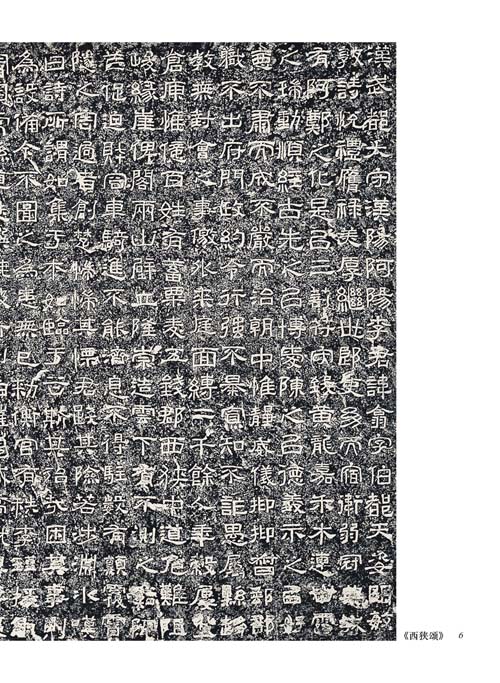 漢武都太守漢陽阿陽李君諱翕字伯都天姿明敏
敦詩悅禮膺祿美厚繼世郎吏幼而宿衛弱冠典城
有阿鄭之化是以三剖符守致黃龍嘉禾木連甘露
之瑞動順經古先之以博愛陳之以德義示之以好
惡不肅而成不嚴而治朝中惟靜威儀抑抑督郵部
職不出府門政約令行強不暴寡知不詐愚屬縣趨
教無對會之事徼外來庭面縛二千餘人年穀屢登
倉庾惟億百姓有蓄粟麥五錢郡西狹中道危難阻
峻緣崖俾閣兩山壁立隆崇造雲下有不測之谿阨
芲促迫財容車騎進不能濟息不得駐數有顛覆霣
隧之害過者創楚惴惴其慄君踐其險若涉淵冰嘆
曰詩所謂如集于木如臨于谷斯其殆哉困其事則
為設備今不圖之為患無已勑衡官有秩李瑾掾仇
《西狭颂》 6